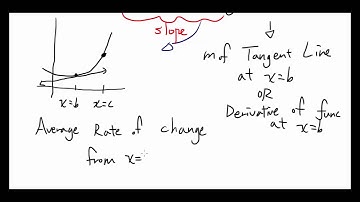 slope
m of Tangent Line
at x=b
OR
Derivative of func
at x=b
x=b x=c
Average Rate of change
from x=